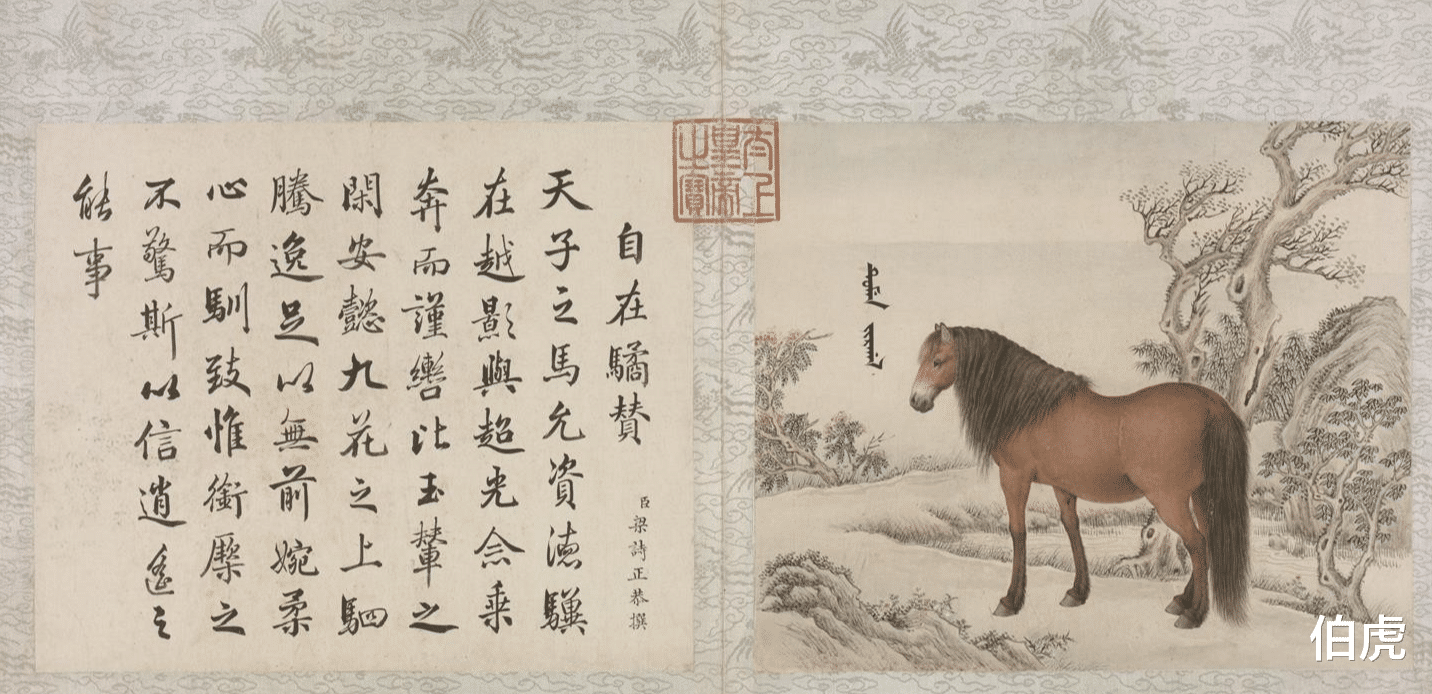 太上皇帝之寶
自在驈賛
臣梁詩正恭撰
天子之馬允資德驥
在越影與超光僉乘
奔而謹轡比玉輦之
閑安懿九花之上駟
騰逸足以無前婉柔
心而馴致惟銜橛之
不驚斯以信逍遙之
能事
伯虎